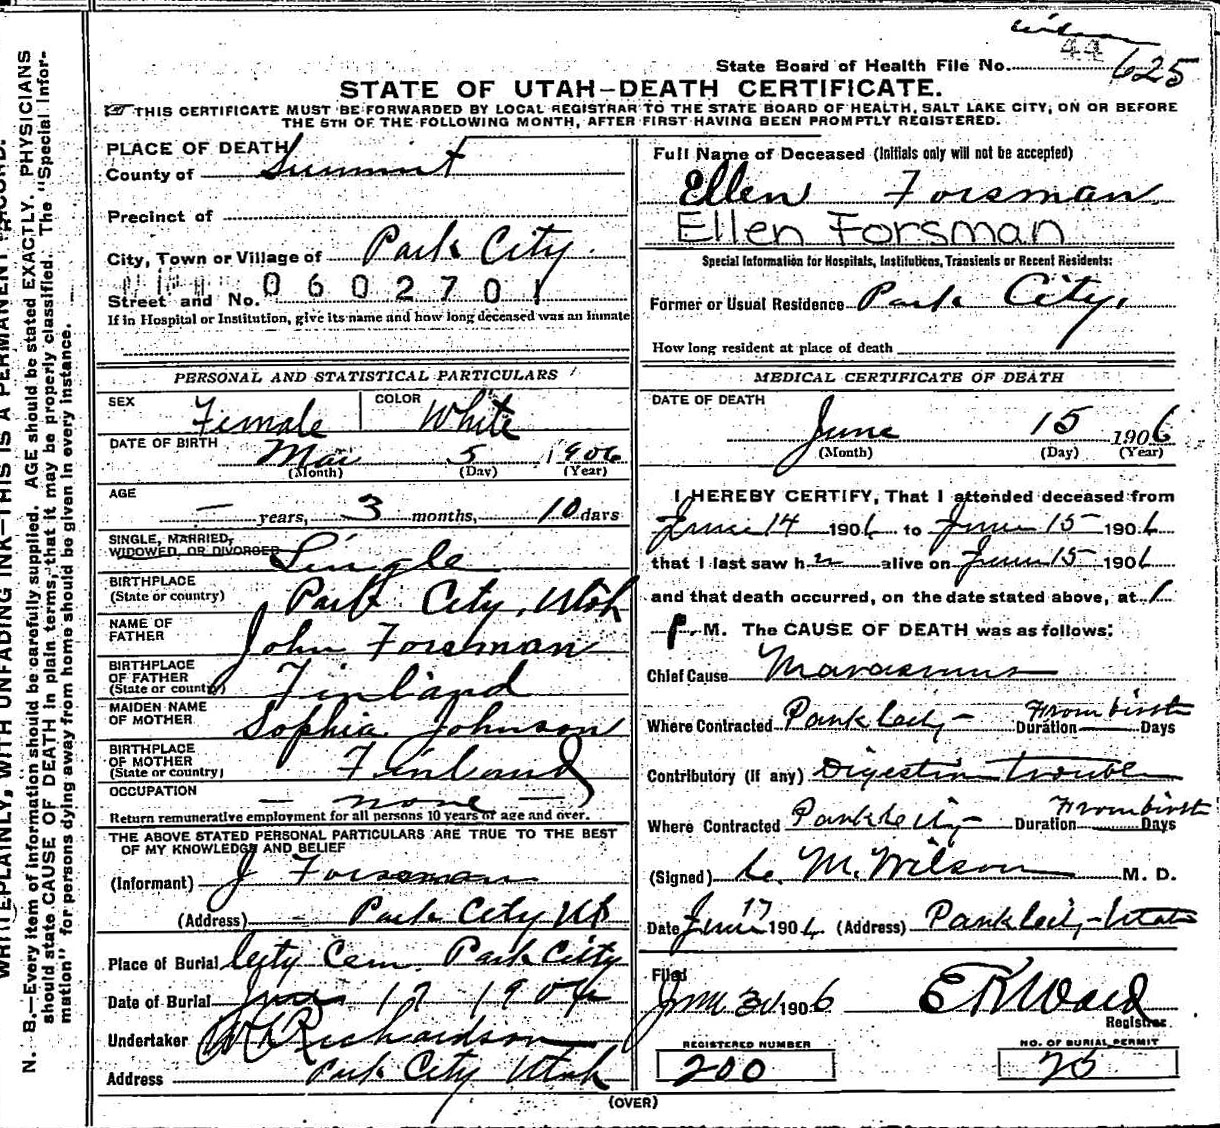 Wilson
44
State Board of Health File No. 625
STATE OF UTAH—DEATH CERTIFICATE.
THIS CERTIFICATE MUST BE FORWARDED BY LOCAL REGISTRAR TO THE STATE BOARD OF HEALTH, SALT LAKE CITY, ON OR BEFORE
THE 5TH OF THE FOLLOWING MONTH, AFTER FIRST HAVING BEEN PROMPTLY REGISTERED.
WRITE PLAINLY, WITH UNFADING INK—THIS IS A PERMANENT RECORD.
N. B.—Every item of information should be carefully supplied. AGE should be stated EXACTLY. PHYSICIANS
should state CAUSE OF DEATH in plain terms, that it may be properly classified. The "Special Infor-
mation" for persons dying away from home should be given in every instance.
PLACE OF DEATH
County of Summit
Precinct of
City, Town or Village of Park City.
Street and No. 0602701
If in Hospital or Institution, give its name and how long deceased was an inmate
PERSONAL AND STATISTICAL PARTICULARS
SEX Female COLOR White
DATE OF BIRTH Mar 5 1906
(Month) (Day) (Year)
AGE
— years, 3 months, 10 days
SINGLE, MARRIED,
WIDOWED, OR DIVORCED Single
BIRTHPLACE
(State or country) Park City, Utah
NAME OF
FATHER John Forsman
BIRTHPLACE
OF FATHER
(State or country) Finland
MAIDEN NAME
OF MOTHER Sophia Johnson
BIRTHPLACE
OF MOTHER
(State or country) Finland
OCCUPATION — none —
Return remunerative employment for all persons 10 years of age and over.
THE ABOVE STATED PERSONAL PARTICULARS ARE TRUE TO THE BEST
OF MY KNOWLEDGE AND BELIEF
(Informant) J Forssman
(Address) Park City Ut
Place of Burial City Cem. Park City
Date of Burial June 17 1906
Undertaker Richardson
Address Park City Utah
Full Name of Deceased (Initials only will not be accepted)
Ellen Forsman
Ellen Forsman
Special Information for Hospitals, Institutions, Transients or Recent Residents:
Former or Usual Residence Park City.
How long resident at place of death
MEDICAL CERTIFICATE OF DEATH
DATE OF DEATH
June 15 1906
(Month) (Day) (Year)
I HEREBY CERTIFY, That I attended deceased from
June 14 1906 to June 15 1906
that I last saw her alive on June 15 1906
and that death occurred, on the date stated above, at 1
P. M. The CAUSE OF DEATH was as follows:
Chief Cause Marasmus
Where Contracted Park City — Duration From birth Days
Contributory (if any) Digestive Trouble
Where Contracted Park City — Duration From birth Days
(Signed) C. M. Wilson M. D.
Date June 17 1906 (Address) Park City — Utah
Filed
June 30 1906 E R Ward
Registrar
REGISTERED NUMBER
200
NO. OF BURIAL PERMIT
25
(OVER)